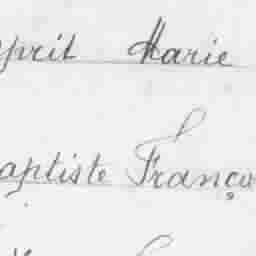 sprit Marie
aptiste Franço